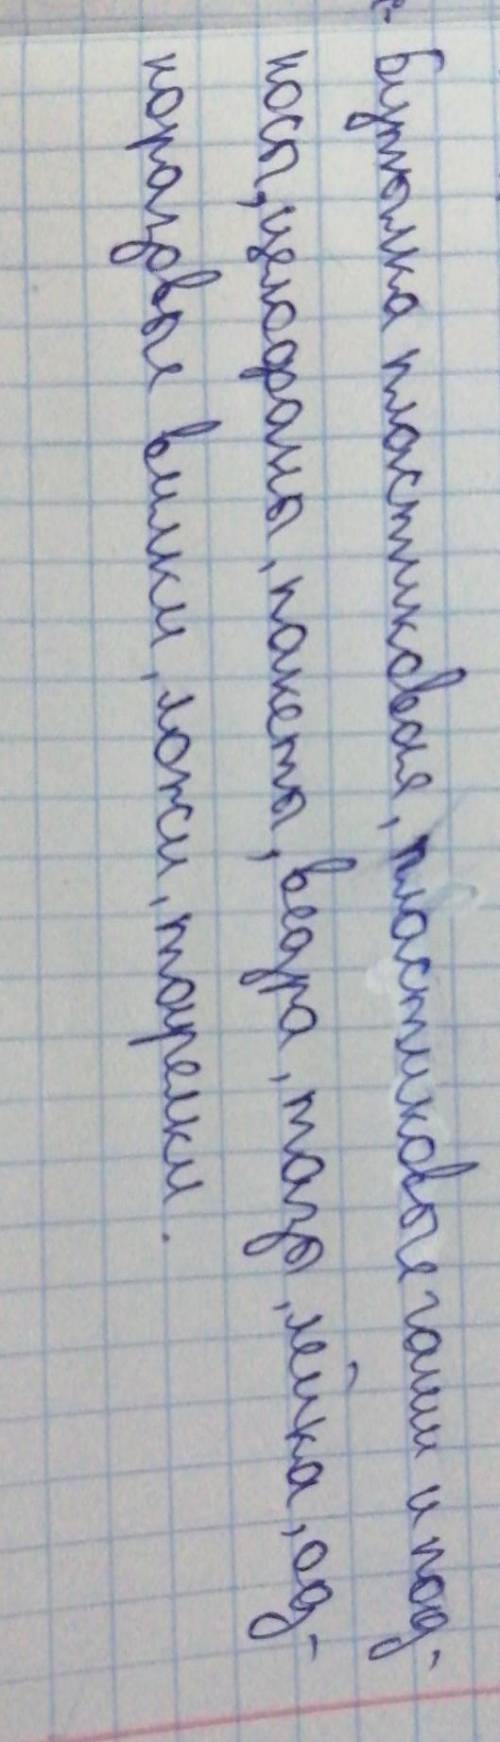 Бутылка пластиковая, пластиковые чаши и под-
носы, целофаны, пакеты, ведра, тазы, лейка, од-
норазовые вилки, ложи, тарелки.